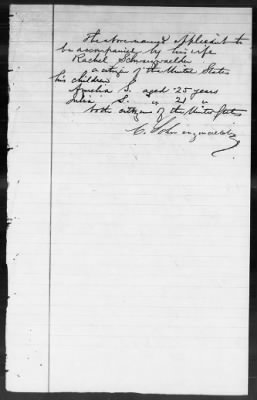 The above named applicant to
be accompanied by his wife
Rachel Schwarzwaelder
a citizen of the United States
his children
Amelia S. aged 25 years
Julia S. " 21 "
both citizens of the United States
C. Schwarzwaelder